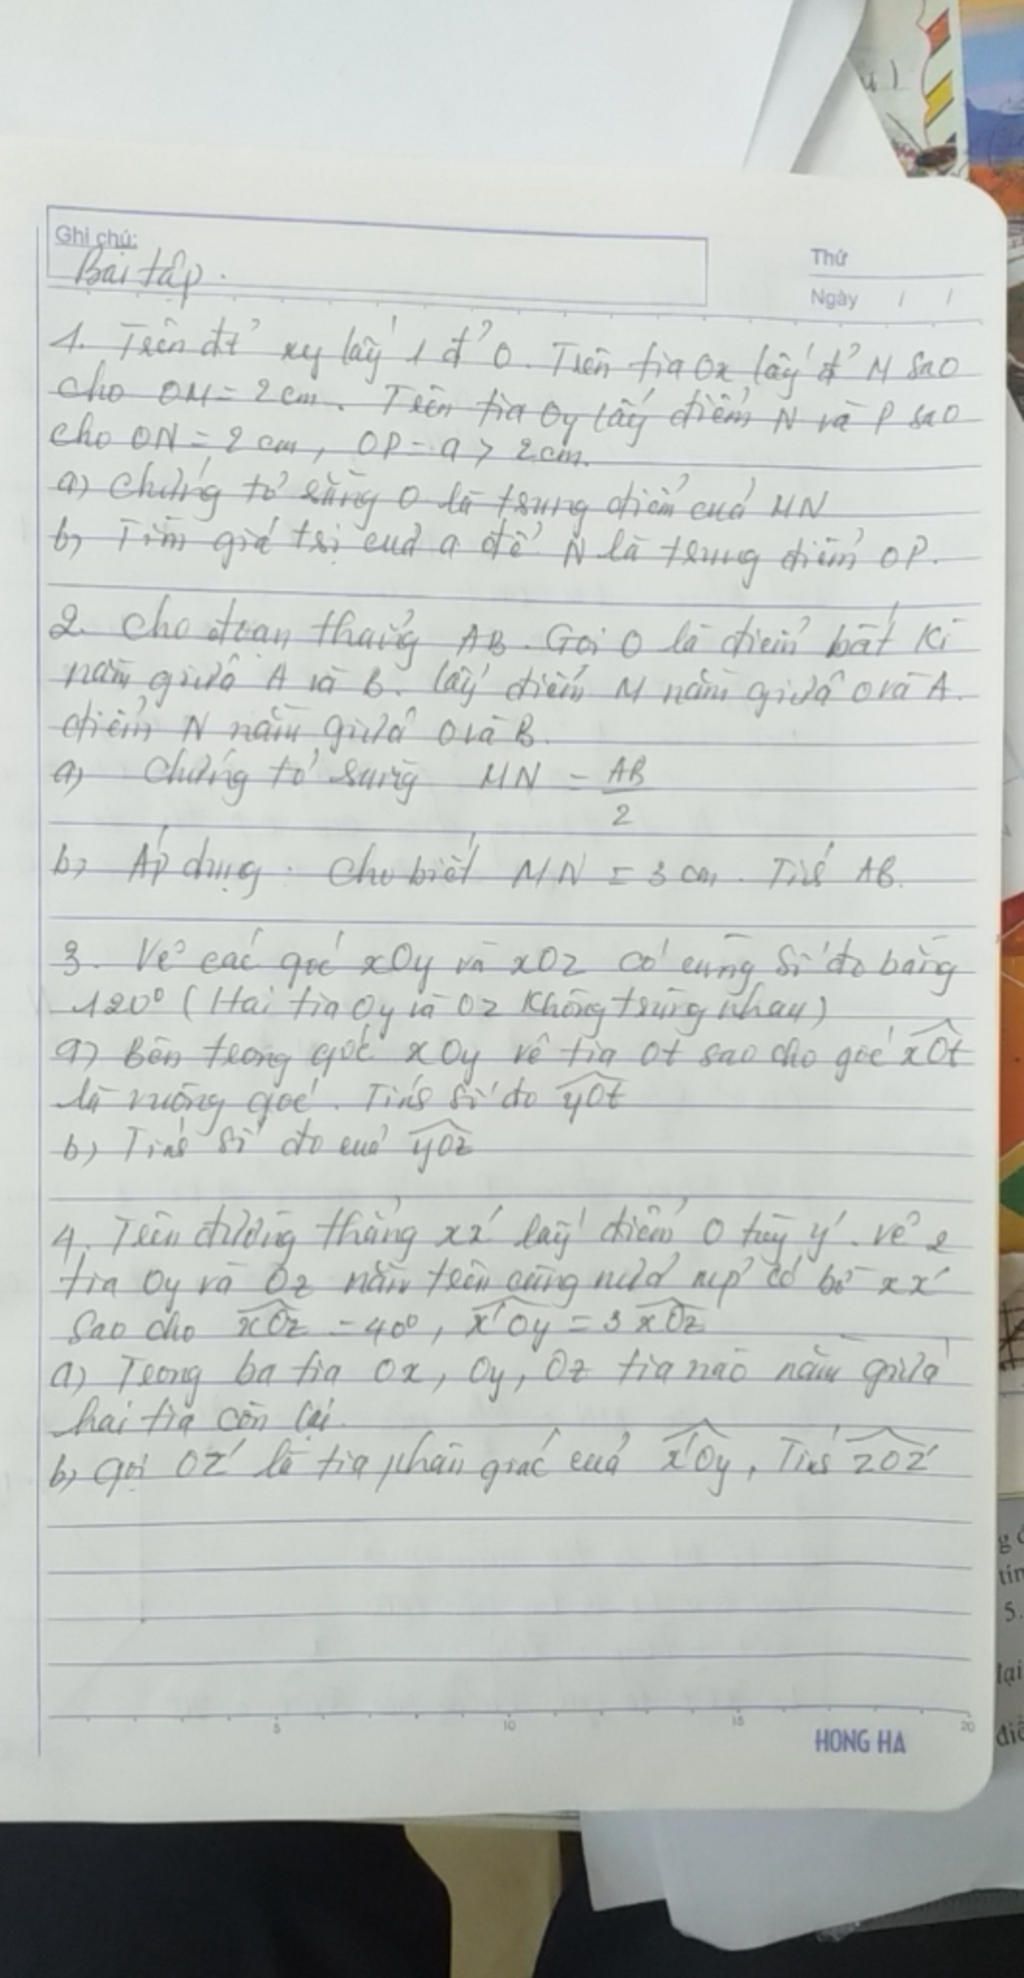 Ghi chú:
Bài tập.
Thứ
Ngày / /
1. Trên đt' xy lấy 1 đ' O. Trên tia Ox lấy đ' M sao
cho OM = 2cm. Trên tia Oy lấy điểm N và P sao
cho ON = 2cm, OP = a > 2cm.
a) Chứng tỏ rằng O là trung điểm của MN
b) Tìm giá trị của a để N là trung điểm OP.
2. Cho đoạn thẳng AB. Gọi O là điểm bất kì
nằm giữa A và B. Lấy điểm M nằm giữa O và A.
điểm N nằm giữa O và B.
a) Chứng tỏ rằng MN = AB/2
b) Áp dụng. Cho biết MN = 3 cm. Tính AB.
3. Vẽ các góc xOy và xOz có cùng số đo bằng
120° (Hai tia Oy và Oz không trùng nhau)
a) Bên trong góc xOy vẽ tia Ot sao cho góc xOt
là vuông góc. Tính số đo yOt
b) Tính số đo của yOz
4. Trên đường thẳng xx' lấy điểm O tùy ý. Vẽ 2
tia Oy và Oz nằm trên cùng nửa mp' có bờ xx'
sao cho xOz = 40°, x'Oy = 3 xOz
a) Trong ba tia Ox, Oy, Oz tia nào nằm giữa
hai tia còn lại.
b) Gọi Oz' là tia phân giác của x'Oy, Tính zOz'
5 10 15 20
HONG HA
5.